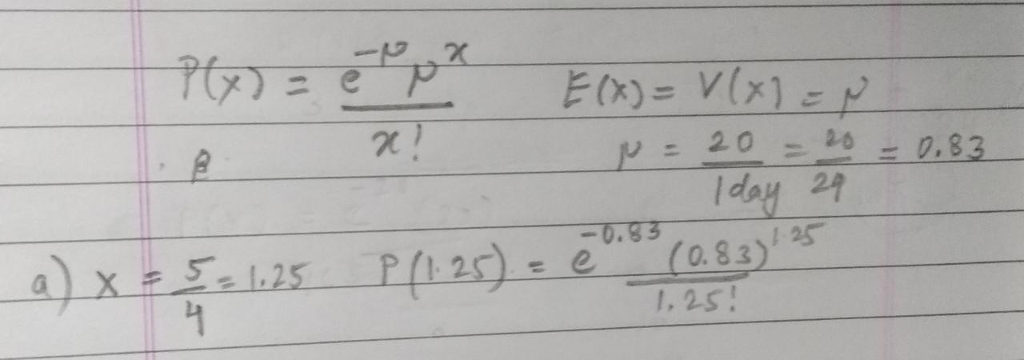 P(x) = e^-μ μ^x / x!    E(x) = V(x) = μ
β    μ = 20 / 1day = 20 / 24 = 0.83
a) x = 5 / 4 = 1.25    P(1.25) = e^-0.83 (0.83)^1.25 / 1.25!